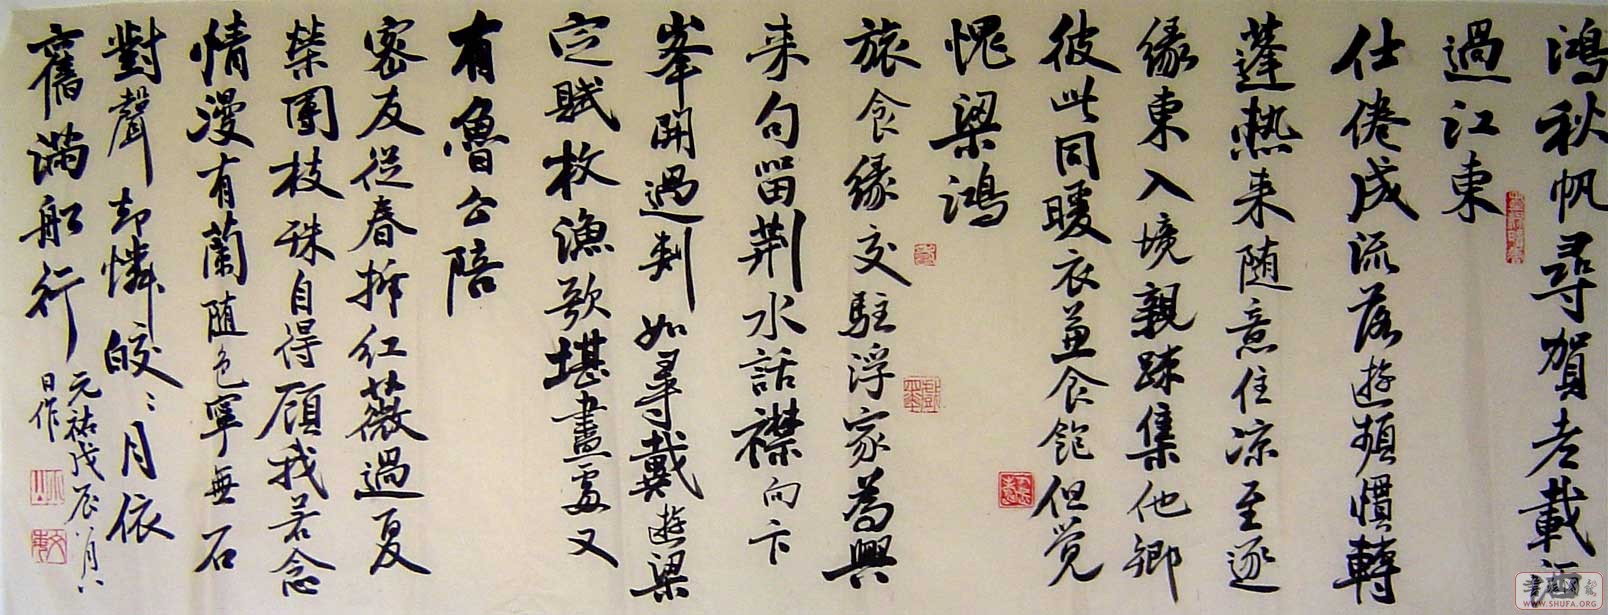 鴻秋帆尋賀老載
過江東
仕倦成流落遊頻慣轉
蓬熱来随意住凉至逐
緣東入境親疎集他鄉
彼此同暖衣兼食飽但覺
愧梁鴻
旅食緣交駐浮家為興
来句留荆水話襟向卞
峯開過剡如尋戴遊梁
定賦枚漁歌堪畫處又
有魯公陪
密友從春拆紅薇過夏
榮團枝殊自得顧我若含
情漫有蘭随色寧無石
對聲却憐皎〻月依
舊滿船行
元祐戊辰八月八
日作
WWW.SHUFA.ORG